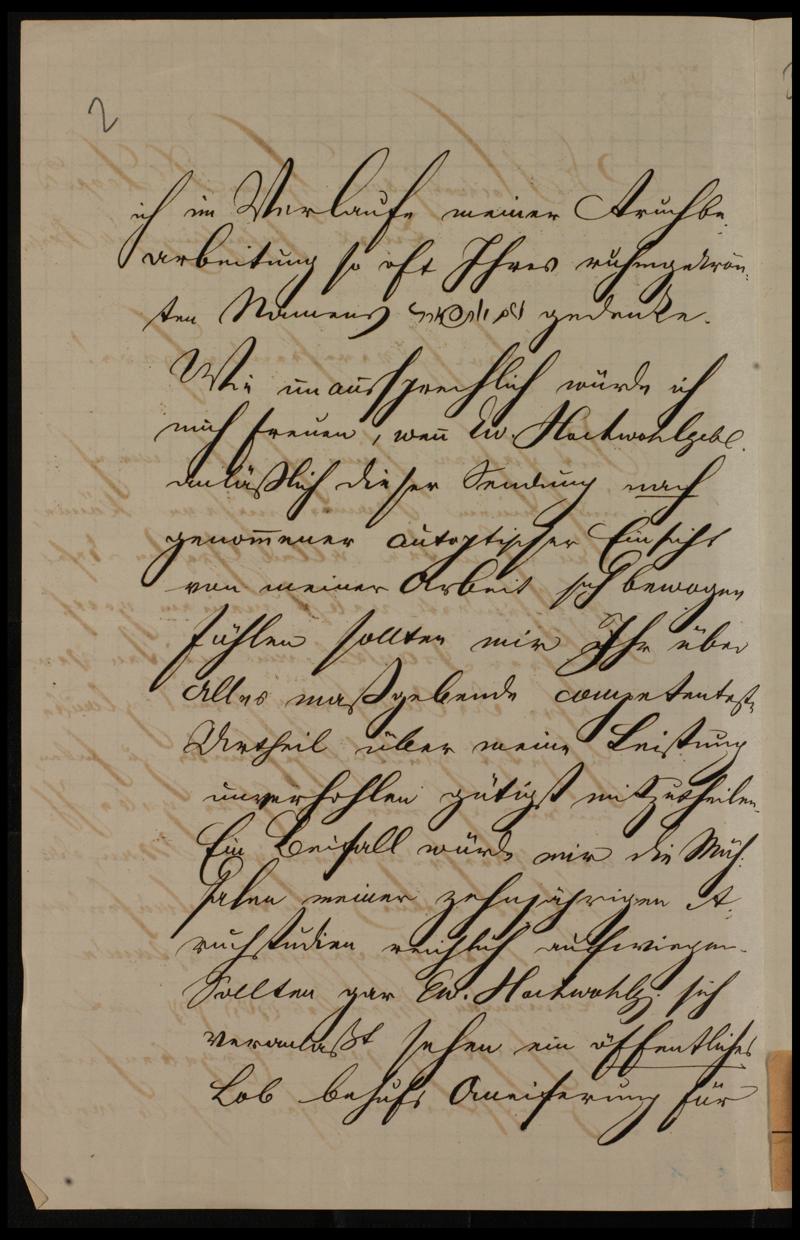 2
ich im Verlaufe meiner Aruchbe-
arbeitung so oft Ihres ruhmgekrön-
ten Namens gedenke.
Wie unaussprechlich würde ich
mich freuen, wen̄ Ew. Hochwohlgeb.
anläßlich dieser Sendung nach
genom̄ener autoptischer Einsicht
von meiner Arbeit sich bewogen
fühlen sollten mir Ihr über
Alles maßgebende competenteste
Urtheil über meine Leistung
unverhohlen gütigst mitzutheilen.
Ein Beifall würde mir die Müh-
salen meiner zehnjährigen A-
ruchstudien reichlich aufwiegen.
Sollten gar Ew. Hochwohlg. sich
veranlaßt sehen ein öffentliches
Lob behufs Aneiferung für